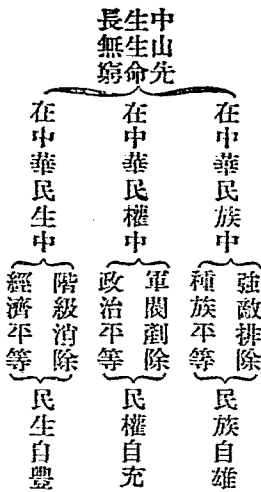 中山先
生生命
長無窮
在中華民族中
強敵排除
種族平等
民族自雄
在中華民權中
軍閥剷除
政治平等
民權自充
在中華民生中
階級消除
經濟平等
民生自豐